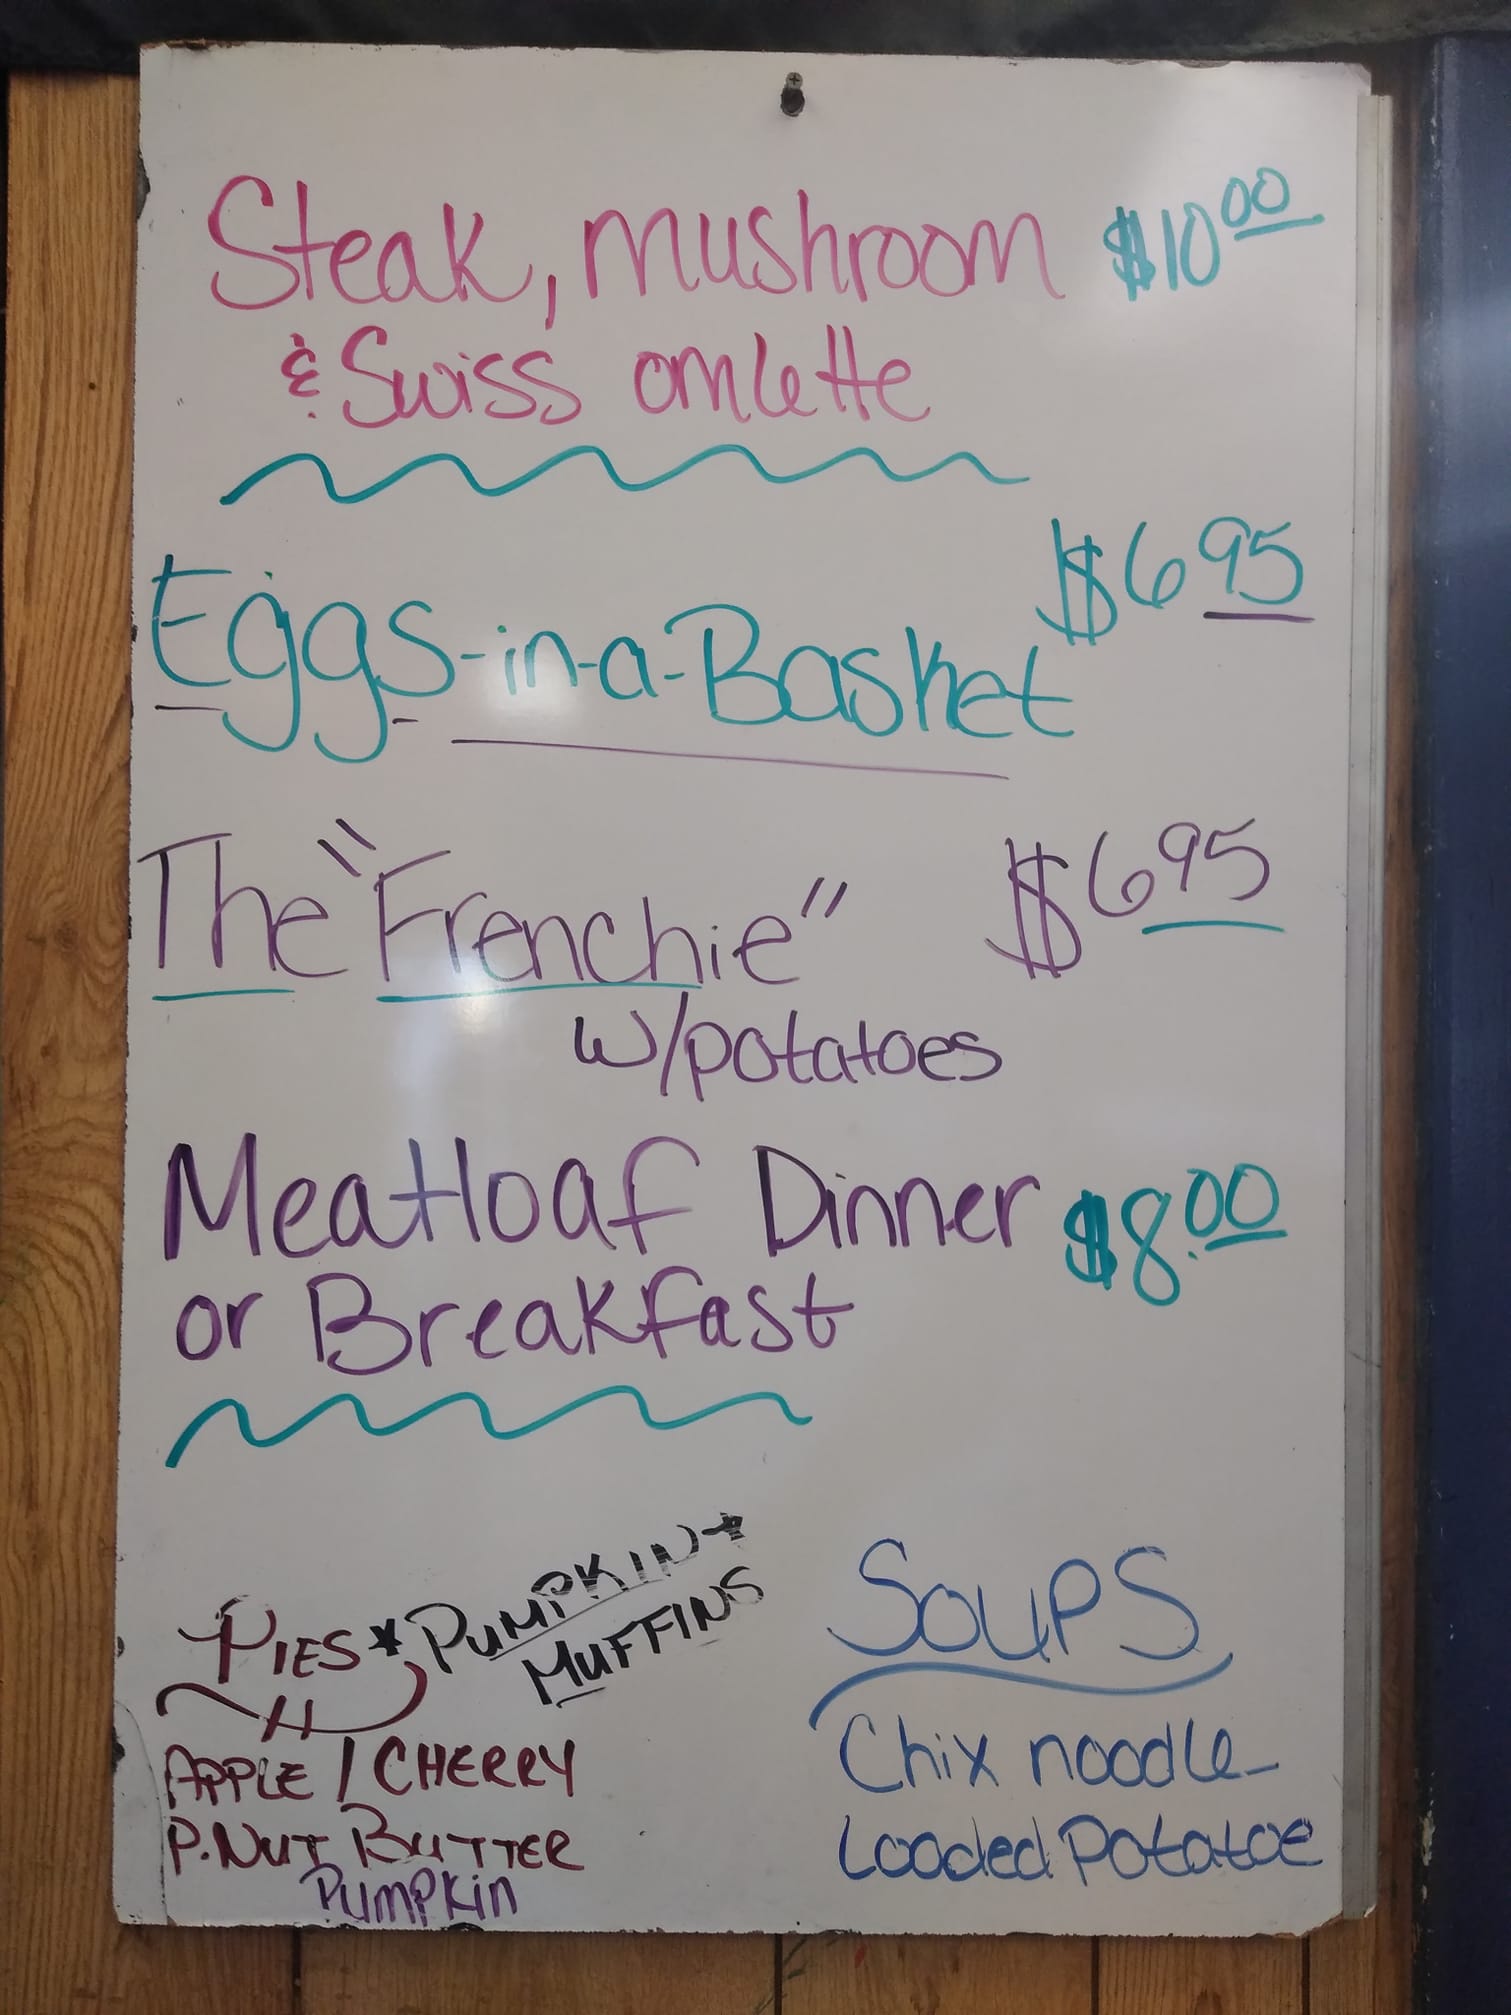 Steak, mushroom $10.00
& Swiss omlette
Eggs-in-a-Basket $6.95
The "Frenchie" $6.95
w/potatoes
Meatloaf Dinner $8.00
or Breakfast
PIES * PUMPKIN *
MUFFINS
APPLE / CHERRY
P.NUT BUTTER
Pumpkin
Soups
Chix noodle
Loaded Potatoe